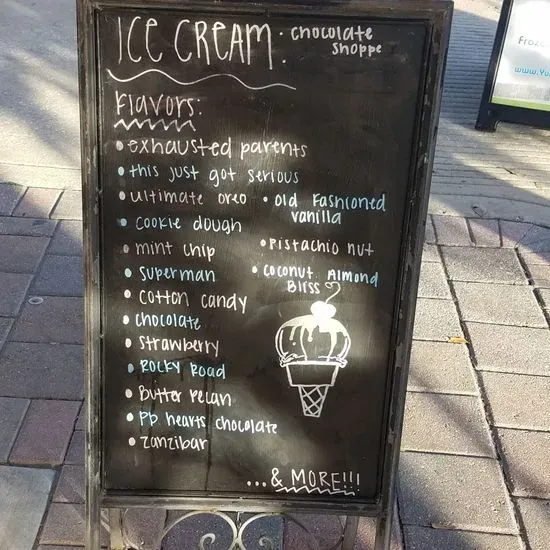 ICE CREAM:
chocolate
shoppe
Flavors:
• exhausted parents
• this just got serious
• ultimate oreo
• cookie dough
• mint chip
• superman
• cotton candy
• chocolate
• strawberry
• Rocky Road
• Butter pecan
• Pb hearts chocolate
• zanzibar
• Old Fashioned
vanilla
• Pistachio nut
• Coconut Almond
Bliss
...& MORE!!!
Froze
www.Yu